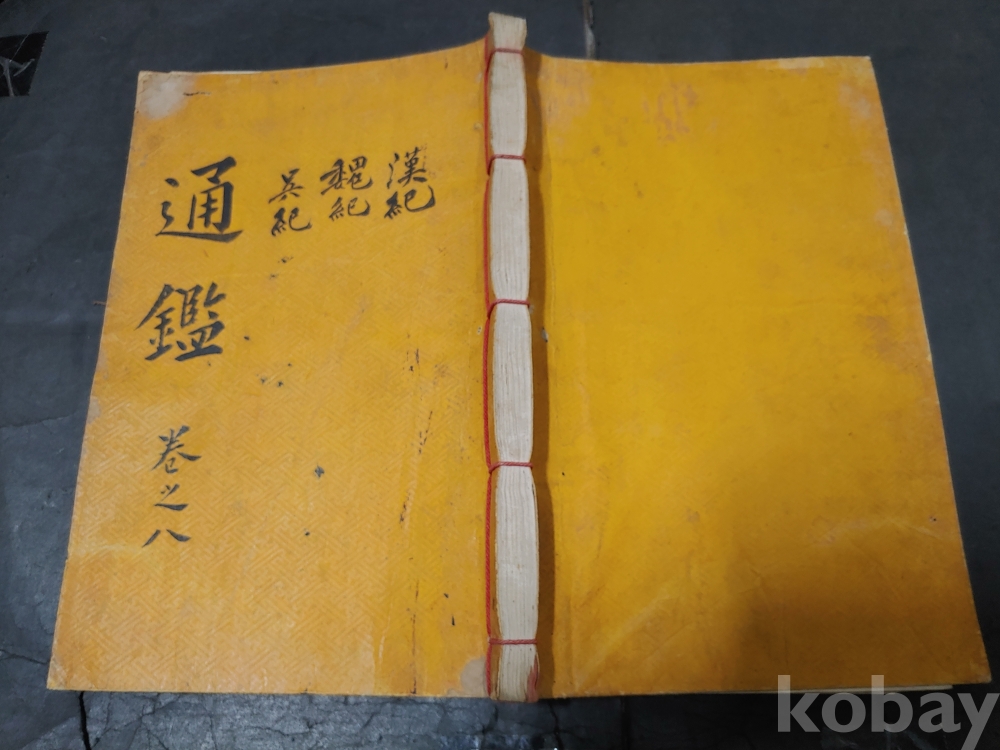 漢紀
魏紀
吳紀
通鑑 卷之八
kobay